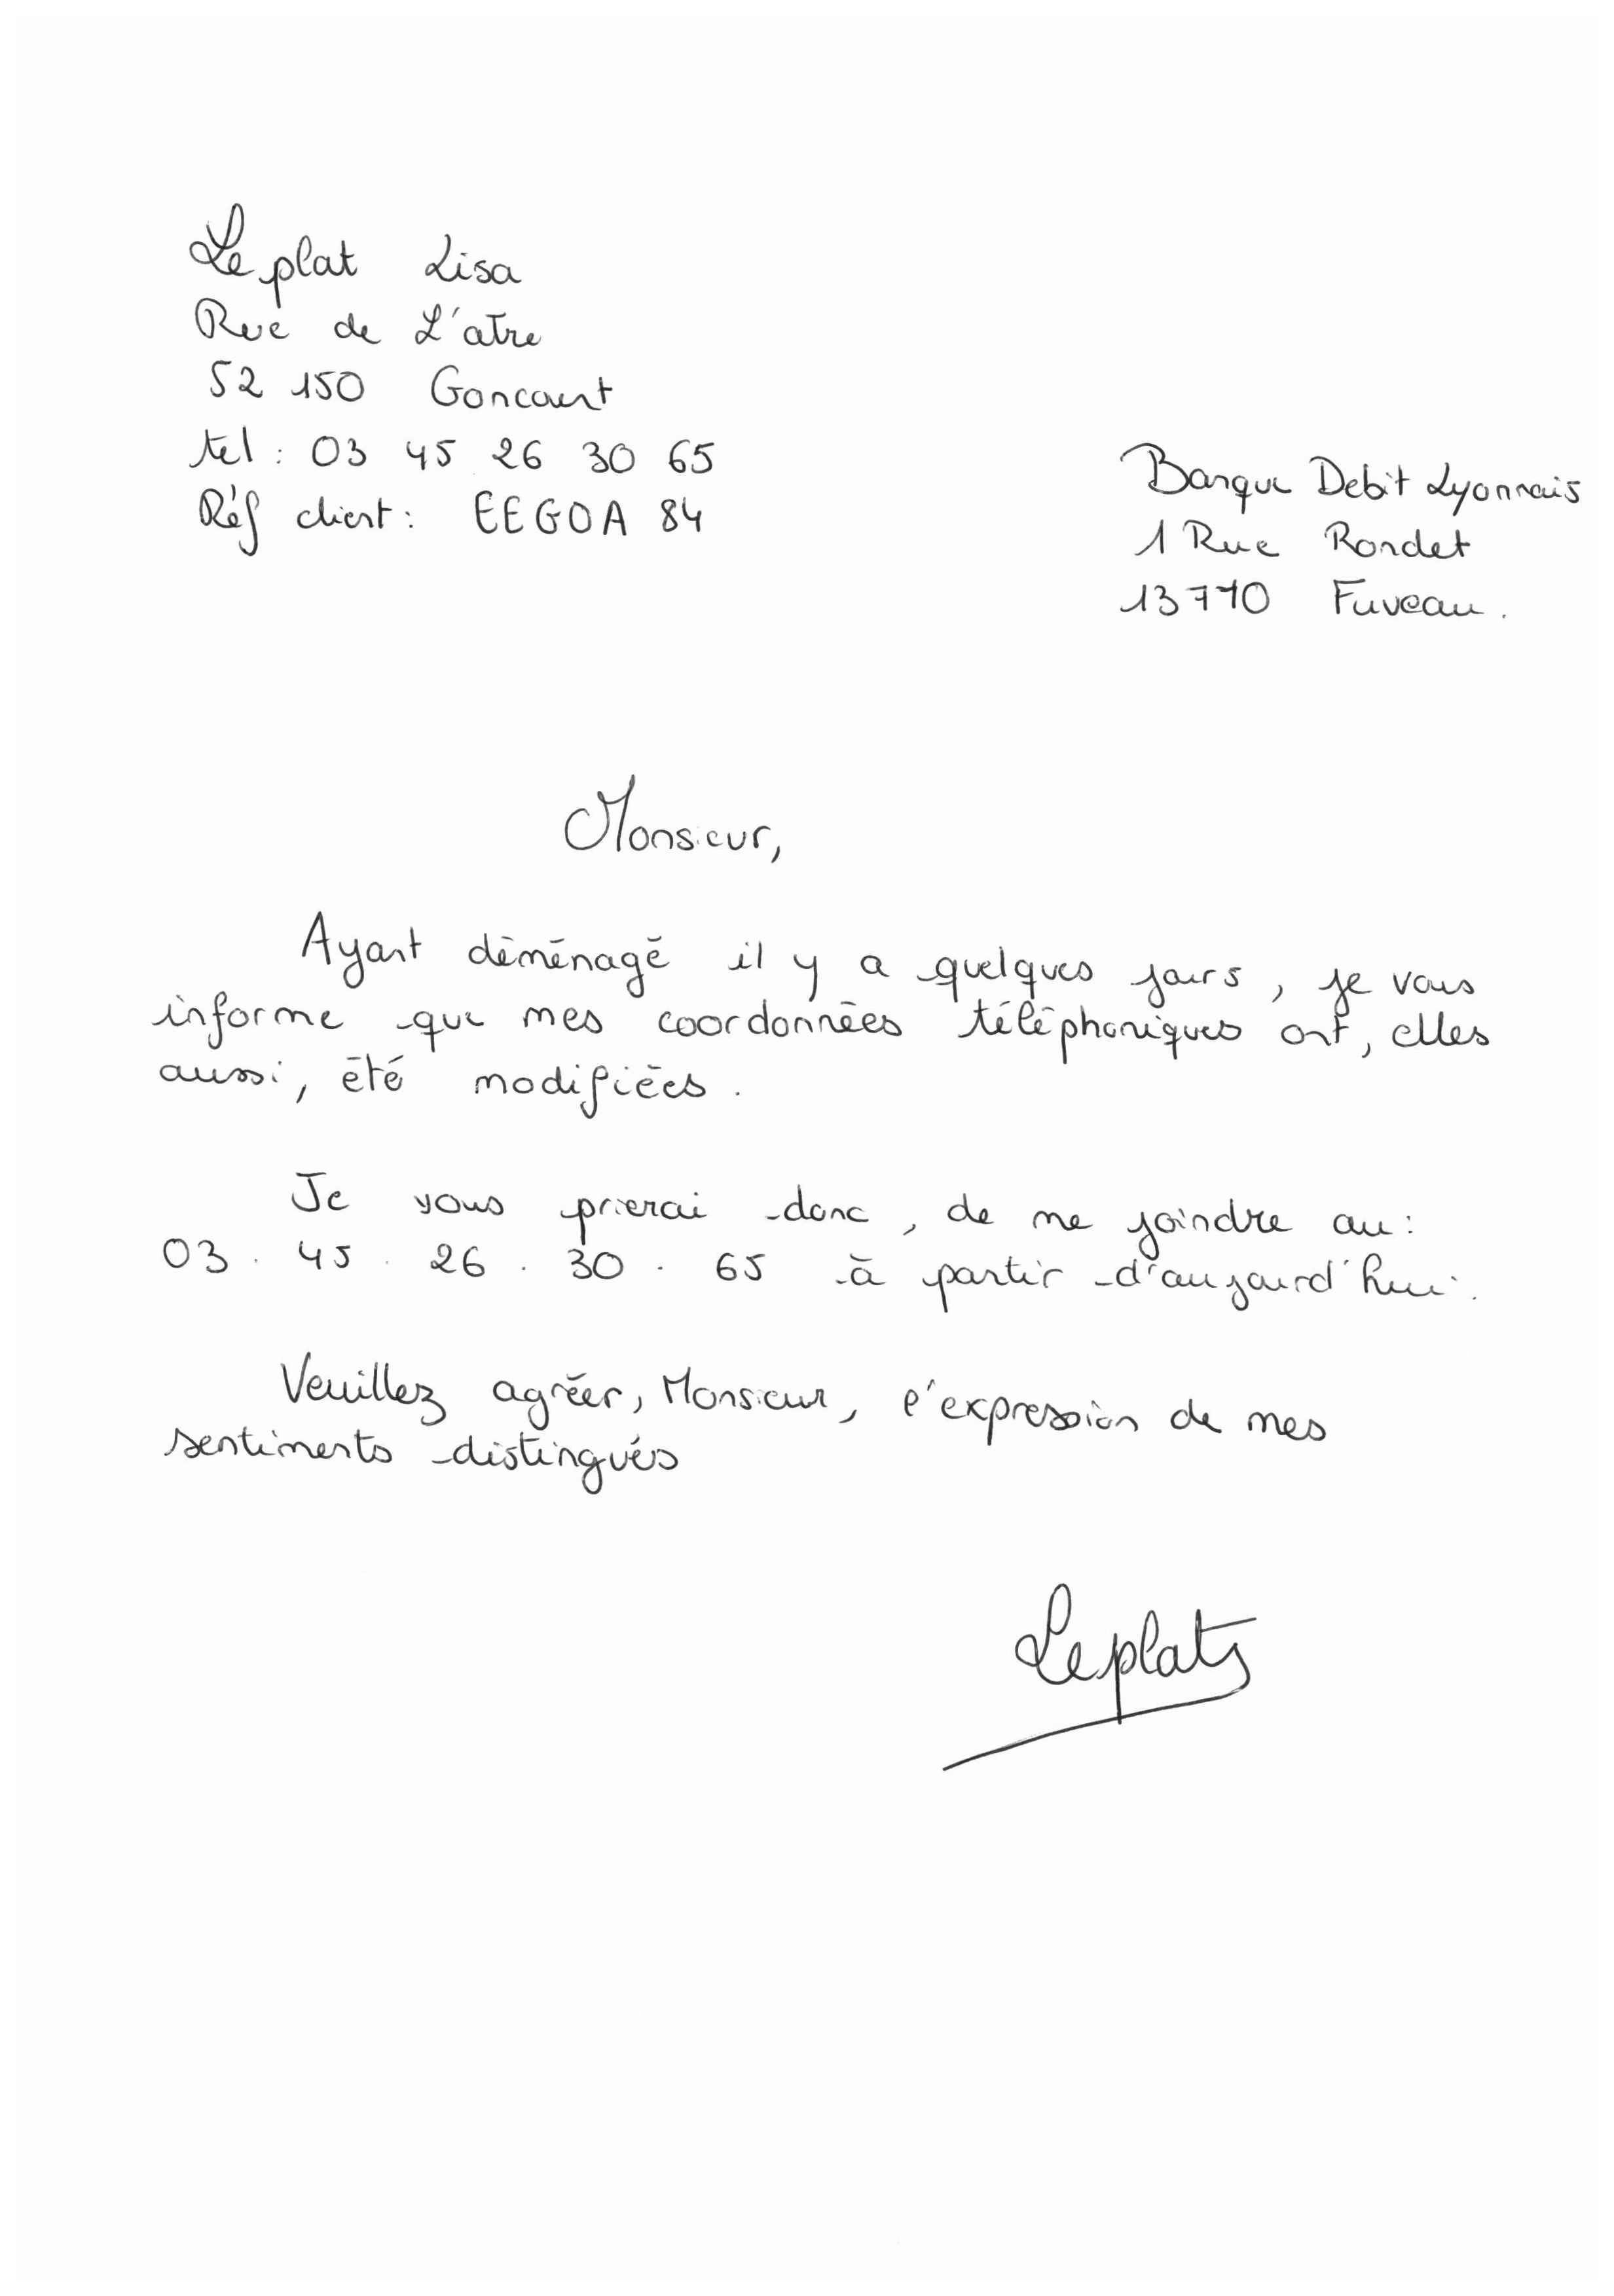 Leplat Lisa
Rue de L'atre
52 150 Goncourt
tel : 03 45 26 30 65
Réf client : EEGOA 84
Banque Debit Lyonnais
1 Rue Rondet
13710 Fuveau.
Monsieur,
Ayant déménagé il y a quelques jours, je vous
informe que mes coordonnées téléphoniques ont, elles
aussi, été modifiées.
Je vous prierai donc, de me joindre au :
03 . 45 . 26 . 30 . 65 à partir d'aujourd'hui.
Veuillez agréer, Monsieur, l'expression de mes
sentiments distingués
Leplat